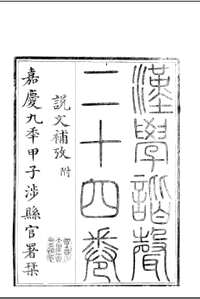 漢學諧聲
二十四卷
說文補攷 附
嘉慶九年甲子涉縣官署栞